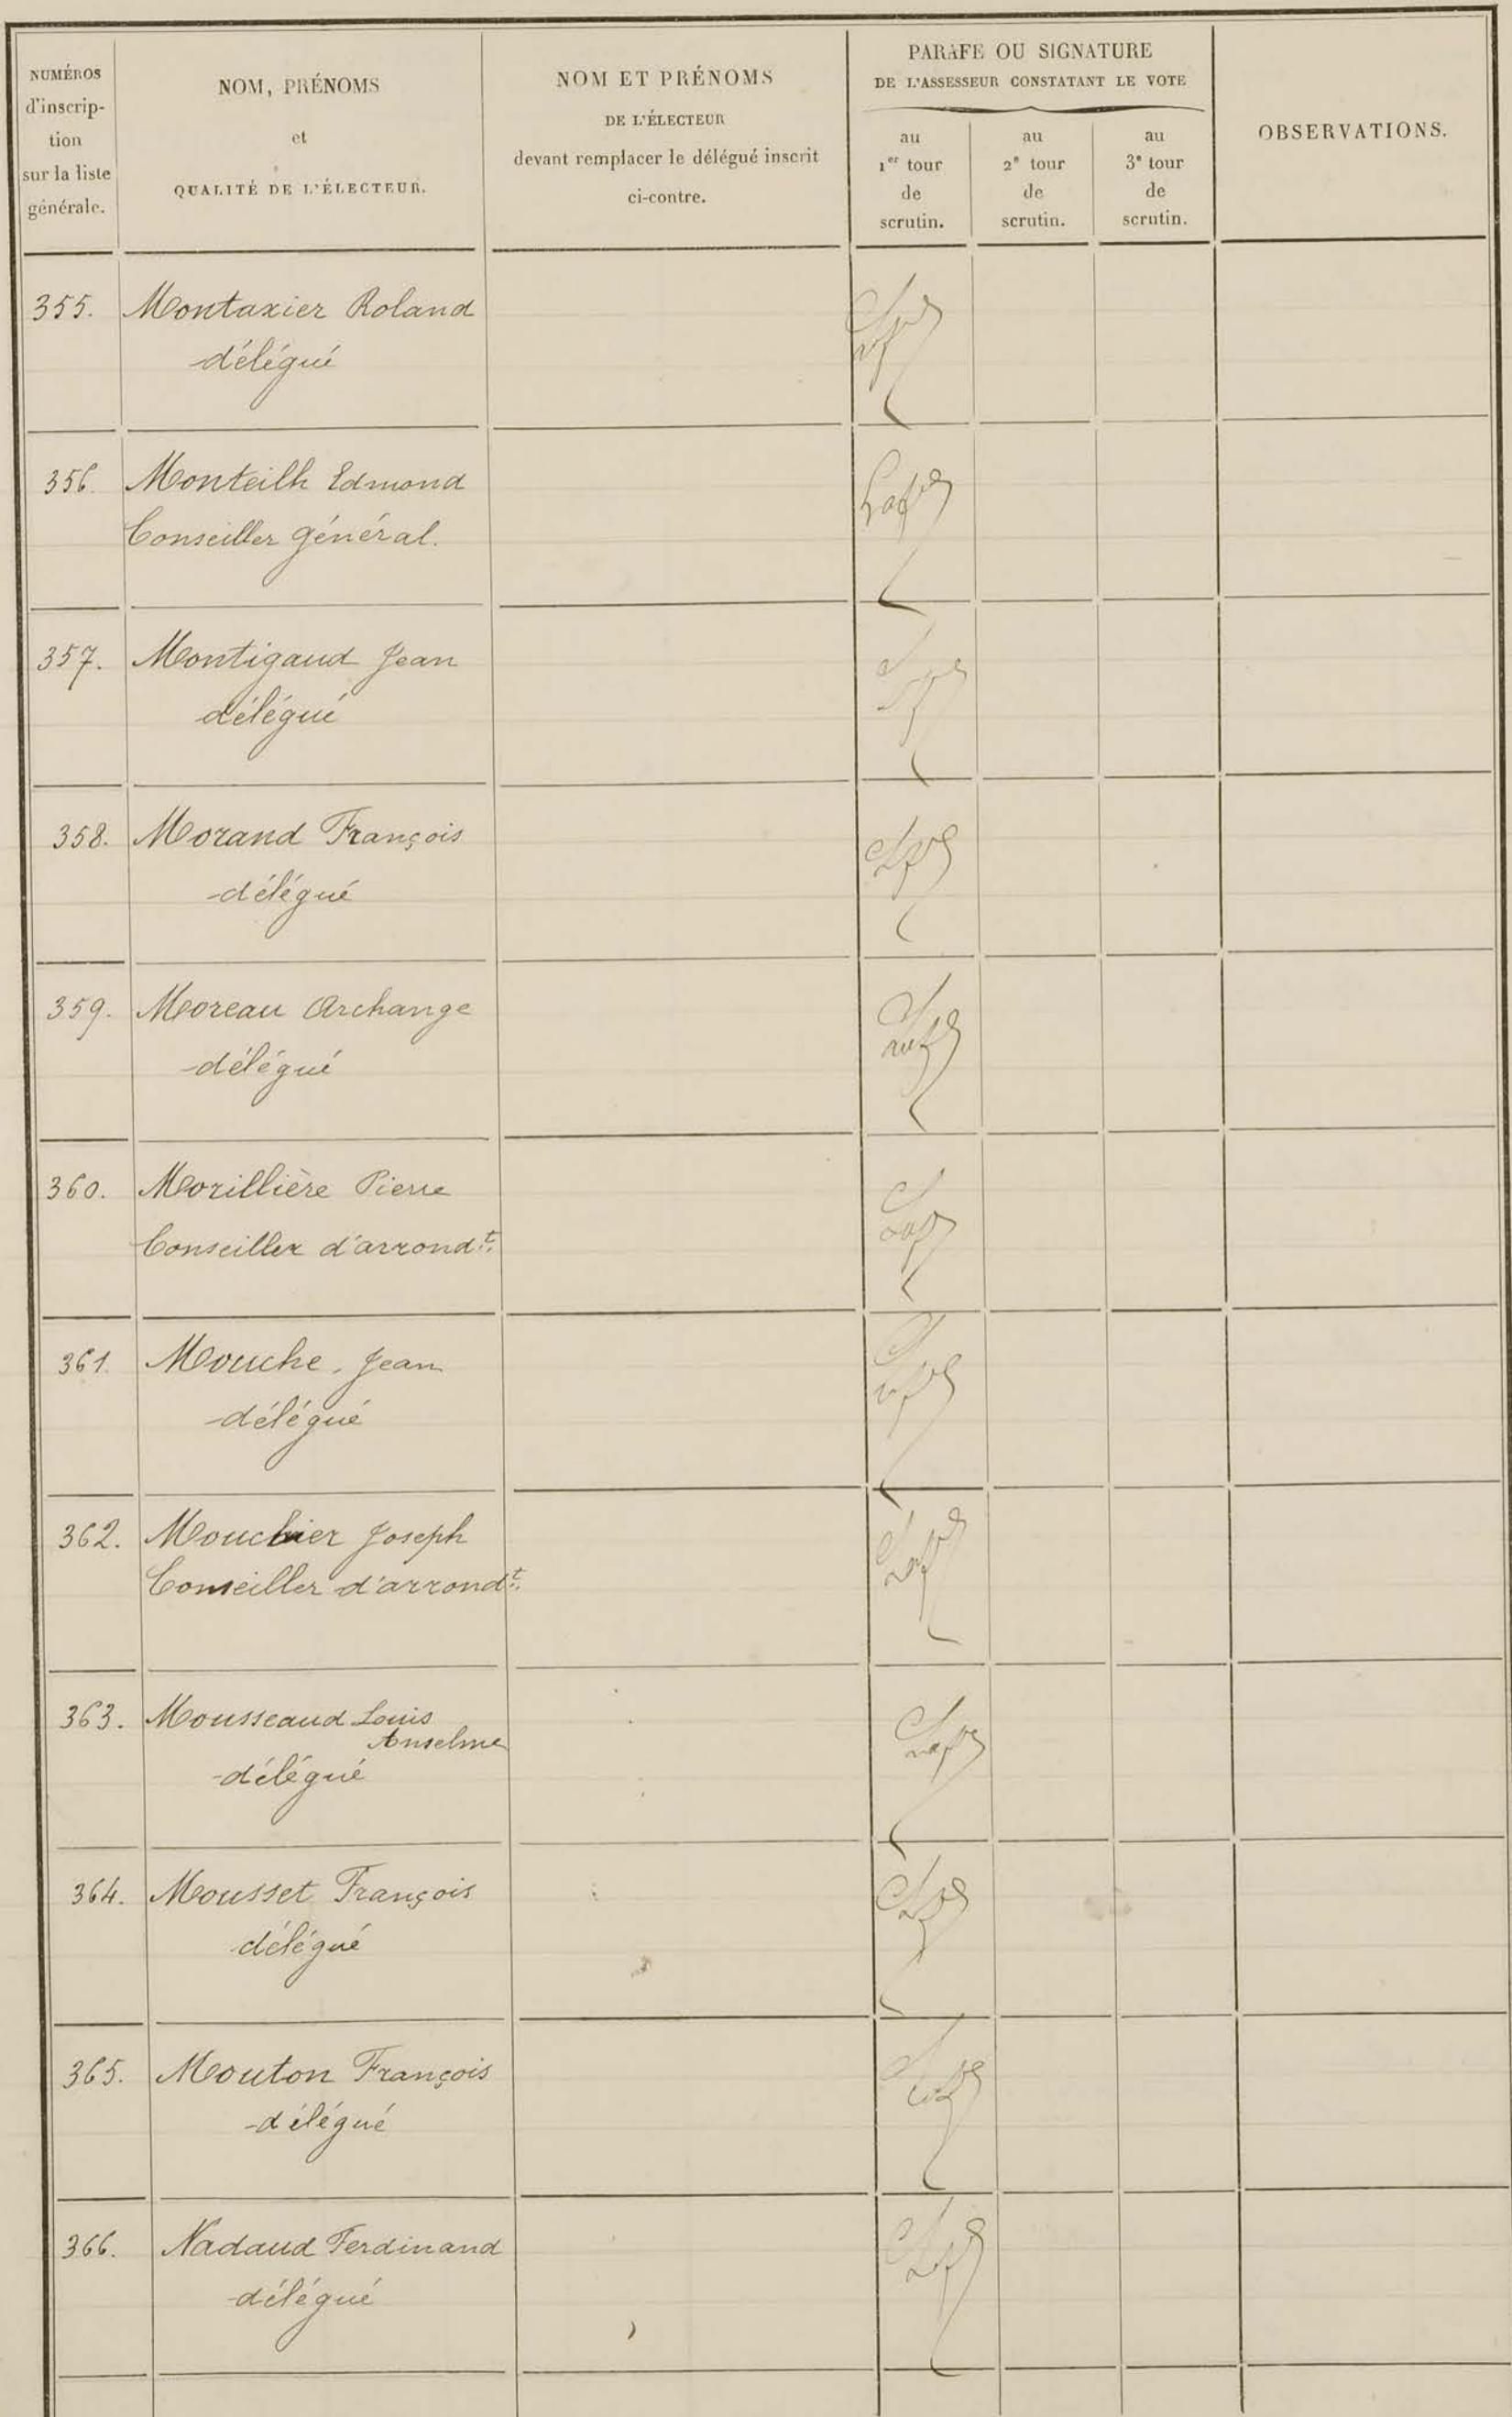 NUMÉROS
d'inscrip-
tion
sur la liste
générale.
NOM, PRÉNOMS
et
QUALITÉ DE L'ÉLECTEUR.
NOM ET PRÉNOMS
DE L'ÉLECTEUR
devant remplacer le délégué inscrit
ci-contre.
PARAFE OU SIGNATURE
DE L'ASSESSEUR CONSTATANT LE VOTE
au
1er tour
de
scrutin.
au
2e tour
de
scrutin.
au
3e tour
de
scrutin.
OBSERVATIONS.
355. Montaxier Roland
délégué
356. Monteilh Edmond
Conseiller général.
357. Montigaud Jean
délégué
358. Morand François
délégué
359. Moreau Archange
délégué
360. Morillière Pierre
Conseiller d'arrondt.
361. Mouche, Jean
délégué
362. Mouchier Joseph
Conseiller d'arrondt.
363. Mousseaud Louis
Anselme
délégué
364. Mousset François
délégué
365. Mouton François
délégué
366. Nadaud Ferdinand
délégué